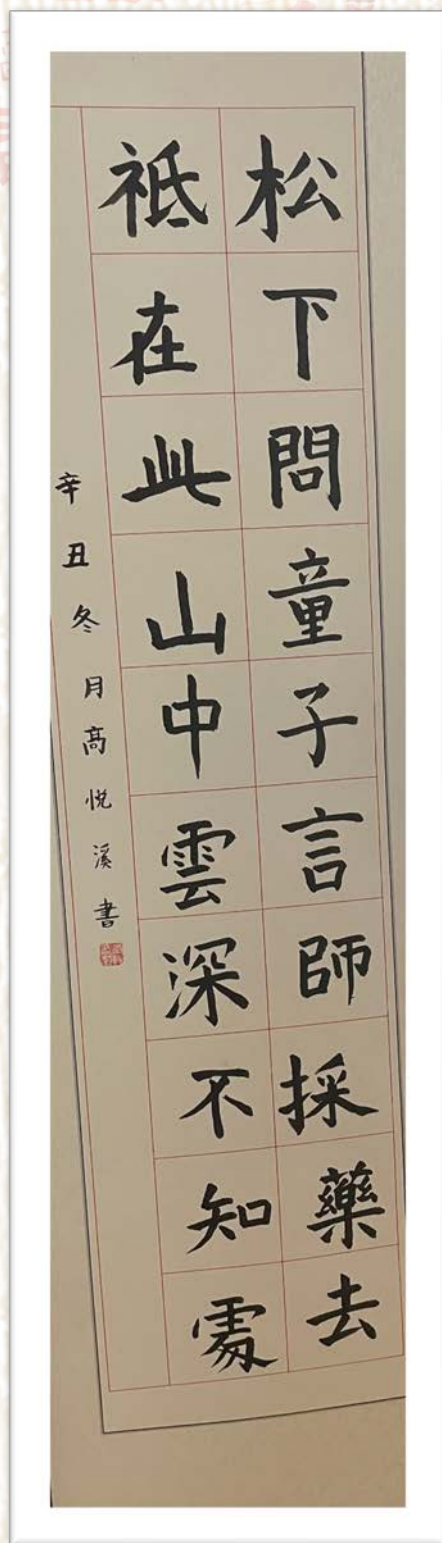 松下問童子言師採藥去
祗在此山中雲深不知處
辛丑冬月高悦溪書